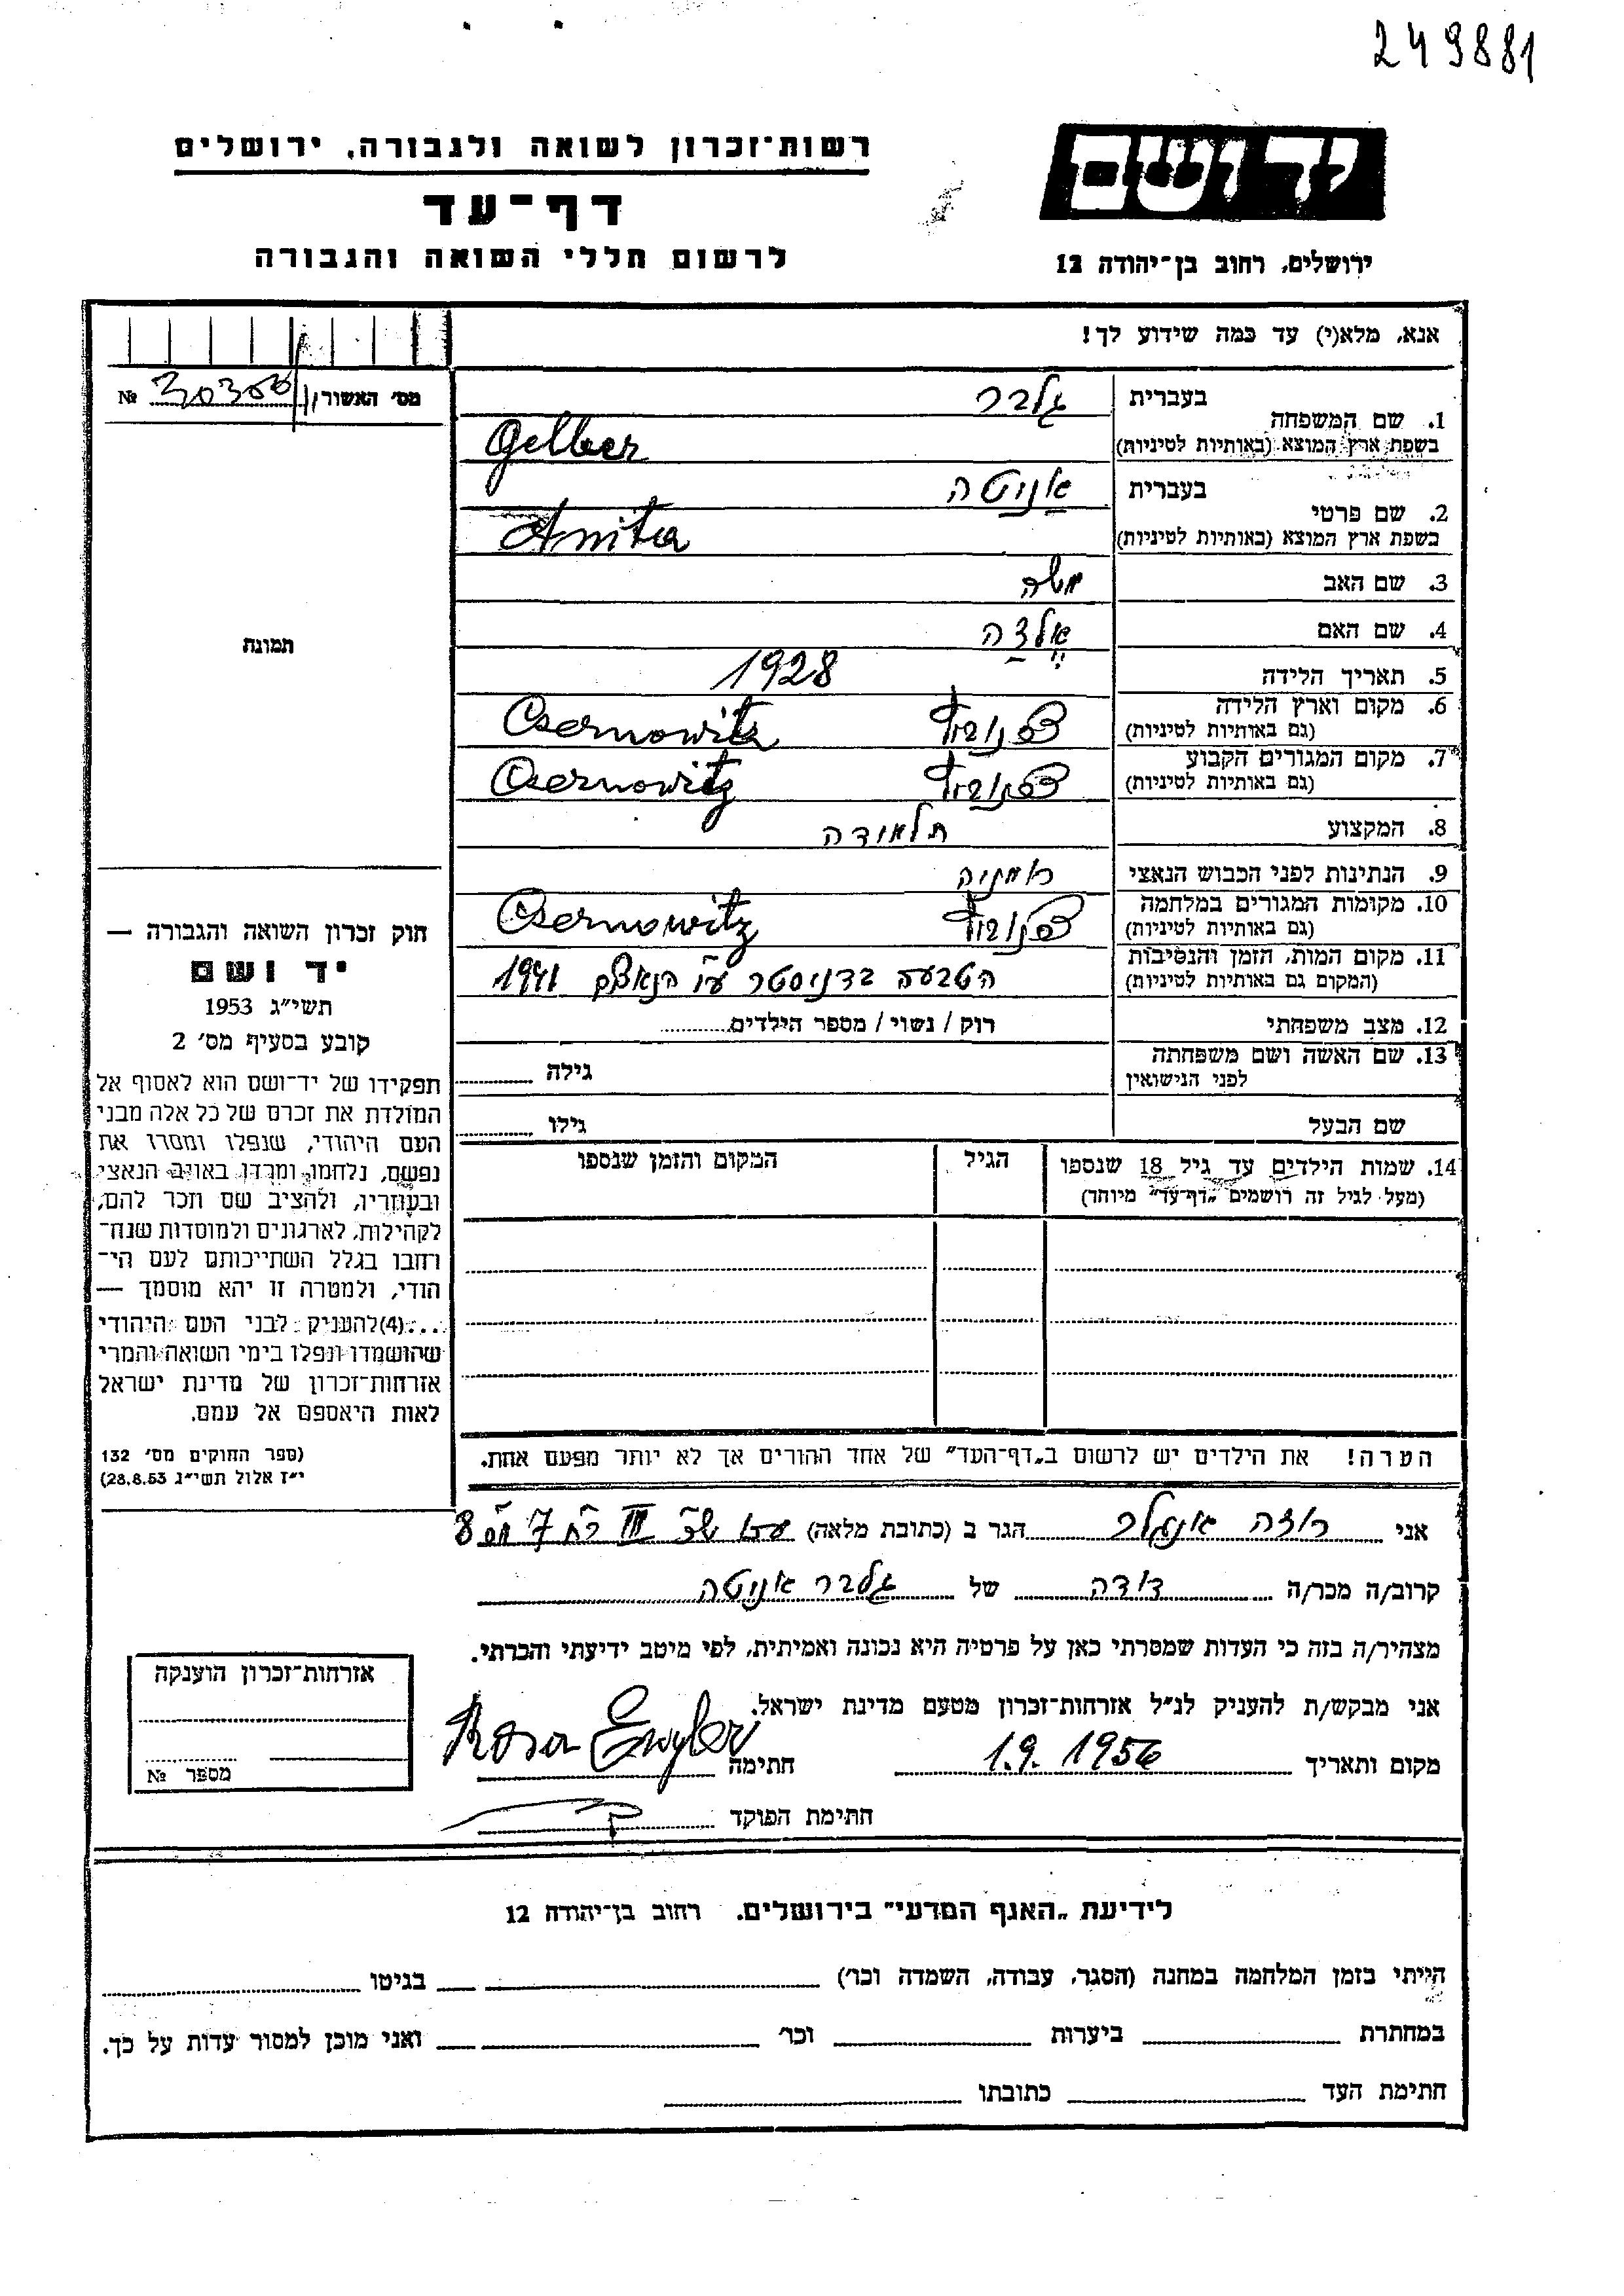 249881
יד ושם
רשות־זכרון לשואה ולגבורה, ירושלים
דף־עד
לרשום חללי השואה והגבורה
ירושלים, רחוב בן־יהודה 12
אנא, מלא(י) עד כמה שידוע לך!
מס' האשור
№
1. שם המשפחה
בעברית גלבר
בשפת ארץ המוצא (באותיות לטיניות) Gelber
2. שם פרטי
בעברית אניטה
בשפת ארץ המוצא (באותיות לטיניות) Anita
3. שם האב משה
4. שם האם אלזה
5. תאריך הלידה 1928
6. מקום וארץ הלידה
(גם באותיות לטיניות) Csernowitz
7. מקום המגורים הקבוע
(גם באותיות לטיניות) Csernowitz
8. המקצוע תלמידה
9. הנתינות לפני הכבוש הנאצי רומניה
10. מקומות המגורים במלחמה
(גם באותיות לטיניות) Csernowitz
11. מקום המות, הזמן והנסיבות
(המקום גם באותיות לטיניות) הטבעה בדניסטר ע"י הנאצים 1941
12. מצב משפחתי רוק / נשוי / מספר הילדים
13. שם האשה ושם משפחתה
לפני הנישואין גילה
שם הבעל גילו
14. שמות הילדים עד גיל 18 שנספו הגיל המקום והזמן שנספו
(מעל לגיל זה רושמים „דף־עד" מיוחד)
תמונה
חוק זכרון השואה והגבורה —
יד ושם
תשי"ג 1953
קובע בסעיף מס' 2
תפקידו של יד־ושם הוא לאסוף אל
המולדת את זכרם של כל אלה מבני
העם היהודי, שנפלו ומסרו את
נפשם, נלחמו ומרדו באויב הנאצי
ובעוזריו, ולהציב שם וזכר להם,
לקהילות, לארגונים ולמוסדות שנח־
רחבו בגלל השתייכותם לעם הי־
הודי, ולמטרה זו יהא מוסמך —
...(4) להעניק לבני העם היהודי
שהושמדו ונפלו בימי השואה והמרי
אזרחות־זכרון של מדינת ישראל
לאות היאספם אל עמם.
(ספר החוקים מס' 132
י"ז אלול תשי"ג 28.8.53)
הערה! את הילדים יש לרשום ב„דף־העד" של אחד ההורים אך לא יותר מפעם אחת.
אני רוזה אנגלר הגר ב (כתובת מלאה)
קרוב/ה מכר/ה דודה של גלבר אניטה
מצהיר/ה בזה כי העדות שמסרתי כאן על פרטיה היא נכונה ואמיתית, לפי מיטב ידיעתי והכרתי.
אני מבקש/ת להעניק לנ"ל אזרחות־זכרון מטעם מדינת ישראל.
מקום ותאריך 1.9.1956 חתימה Rosa Engler
חתימת הפוקד
אזרחות־זכרון הוענקה
מספר №
לידיעת „האגף המדעי" בירושלים. רחוב בן־יהודה 12
הייתי בזמן המלחמה במחנה (הסגר, עבודה, השמדה וכו') בגיטו
במחתרת ביערות וכו' ואני מוכן למסור עדות על כך.
חתימת העד כתובתו